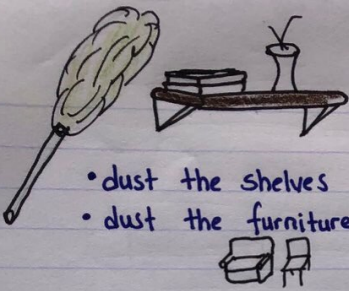 • dust the shelves
• dust the furniture